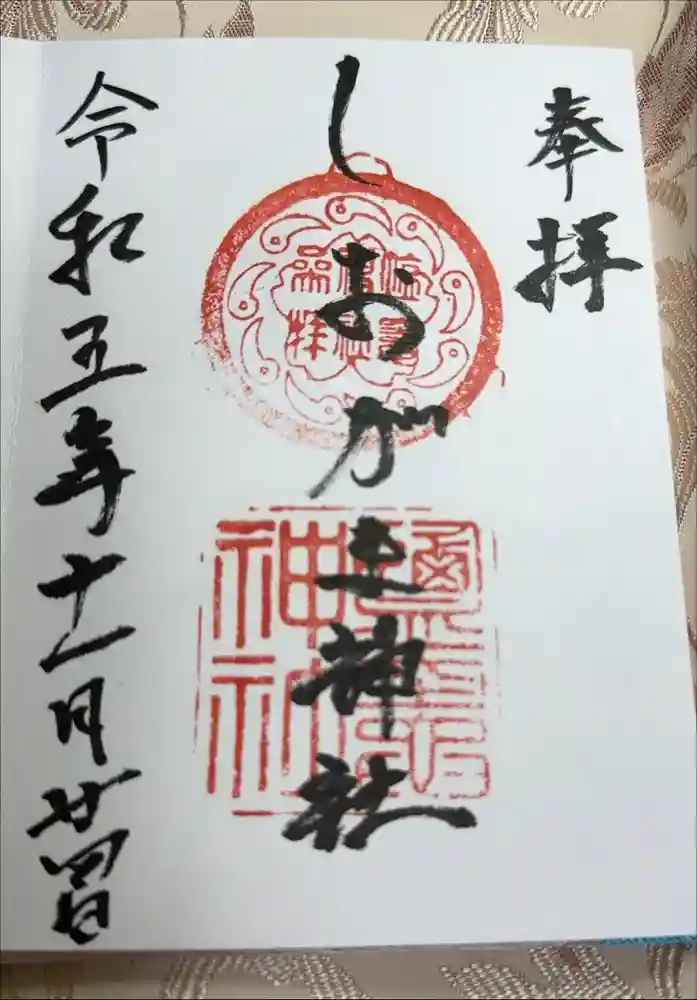 奉拝
しおがま神社
鹽竈
神社
令和五年十一月廿四日